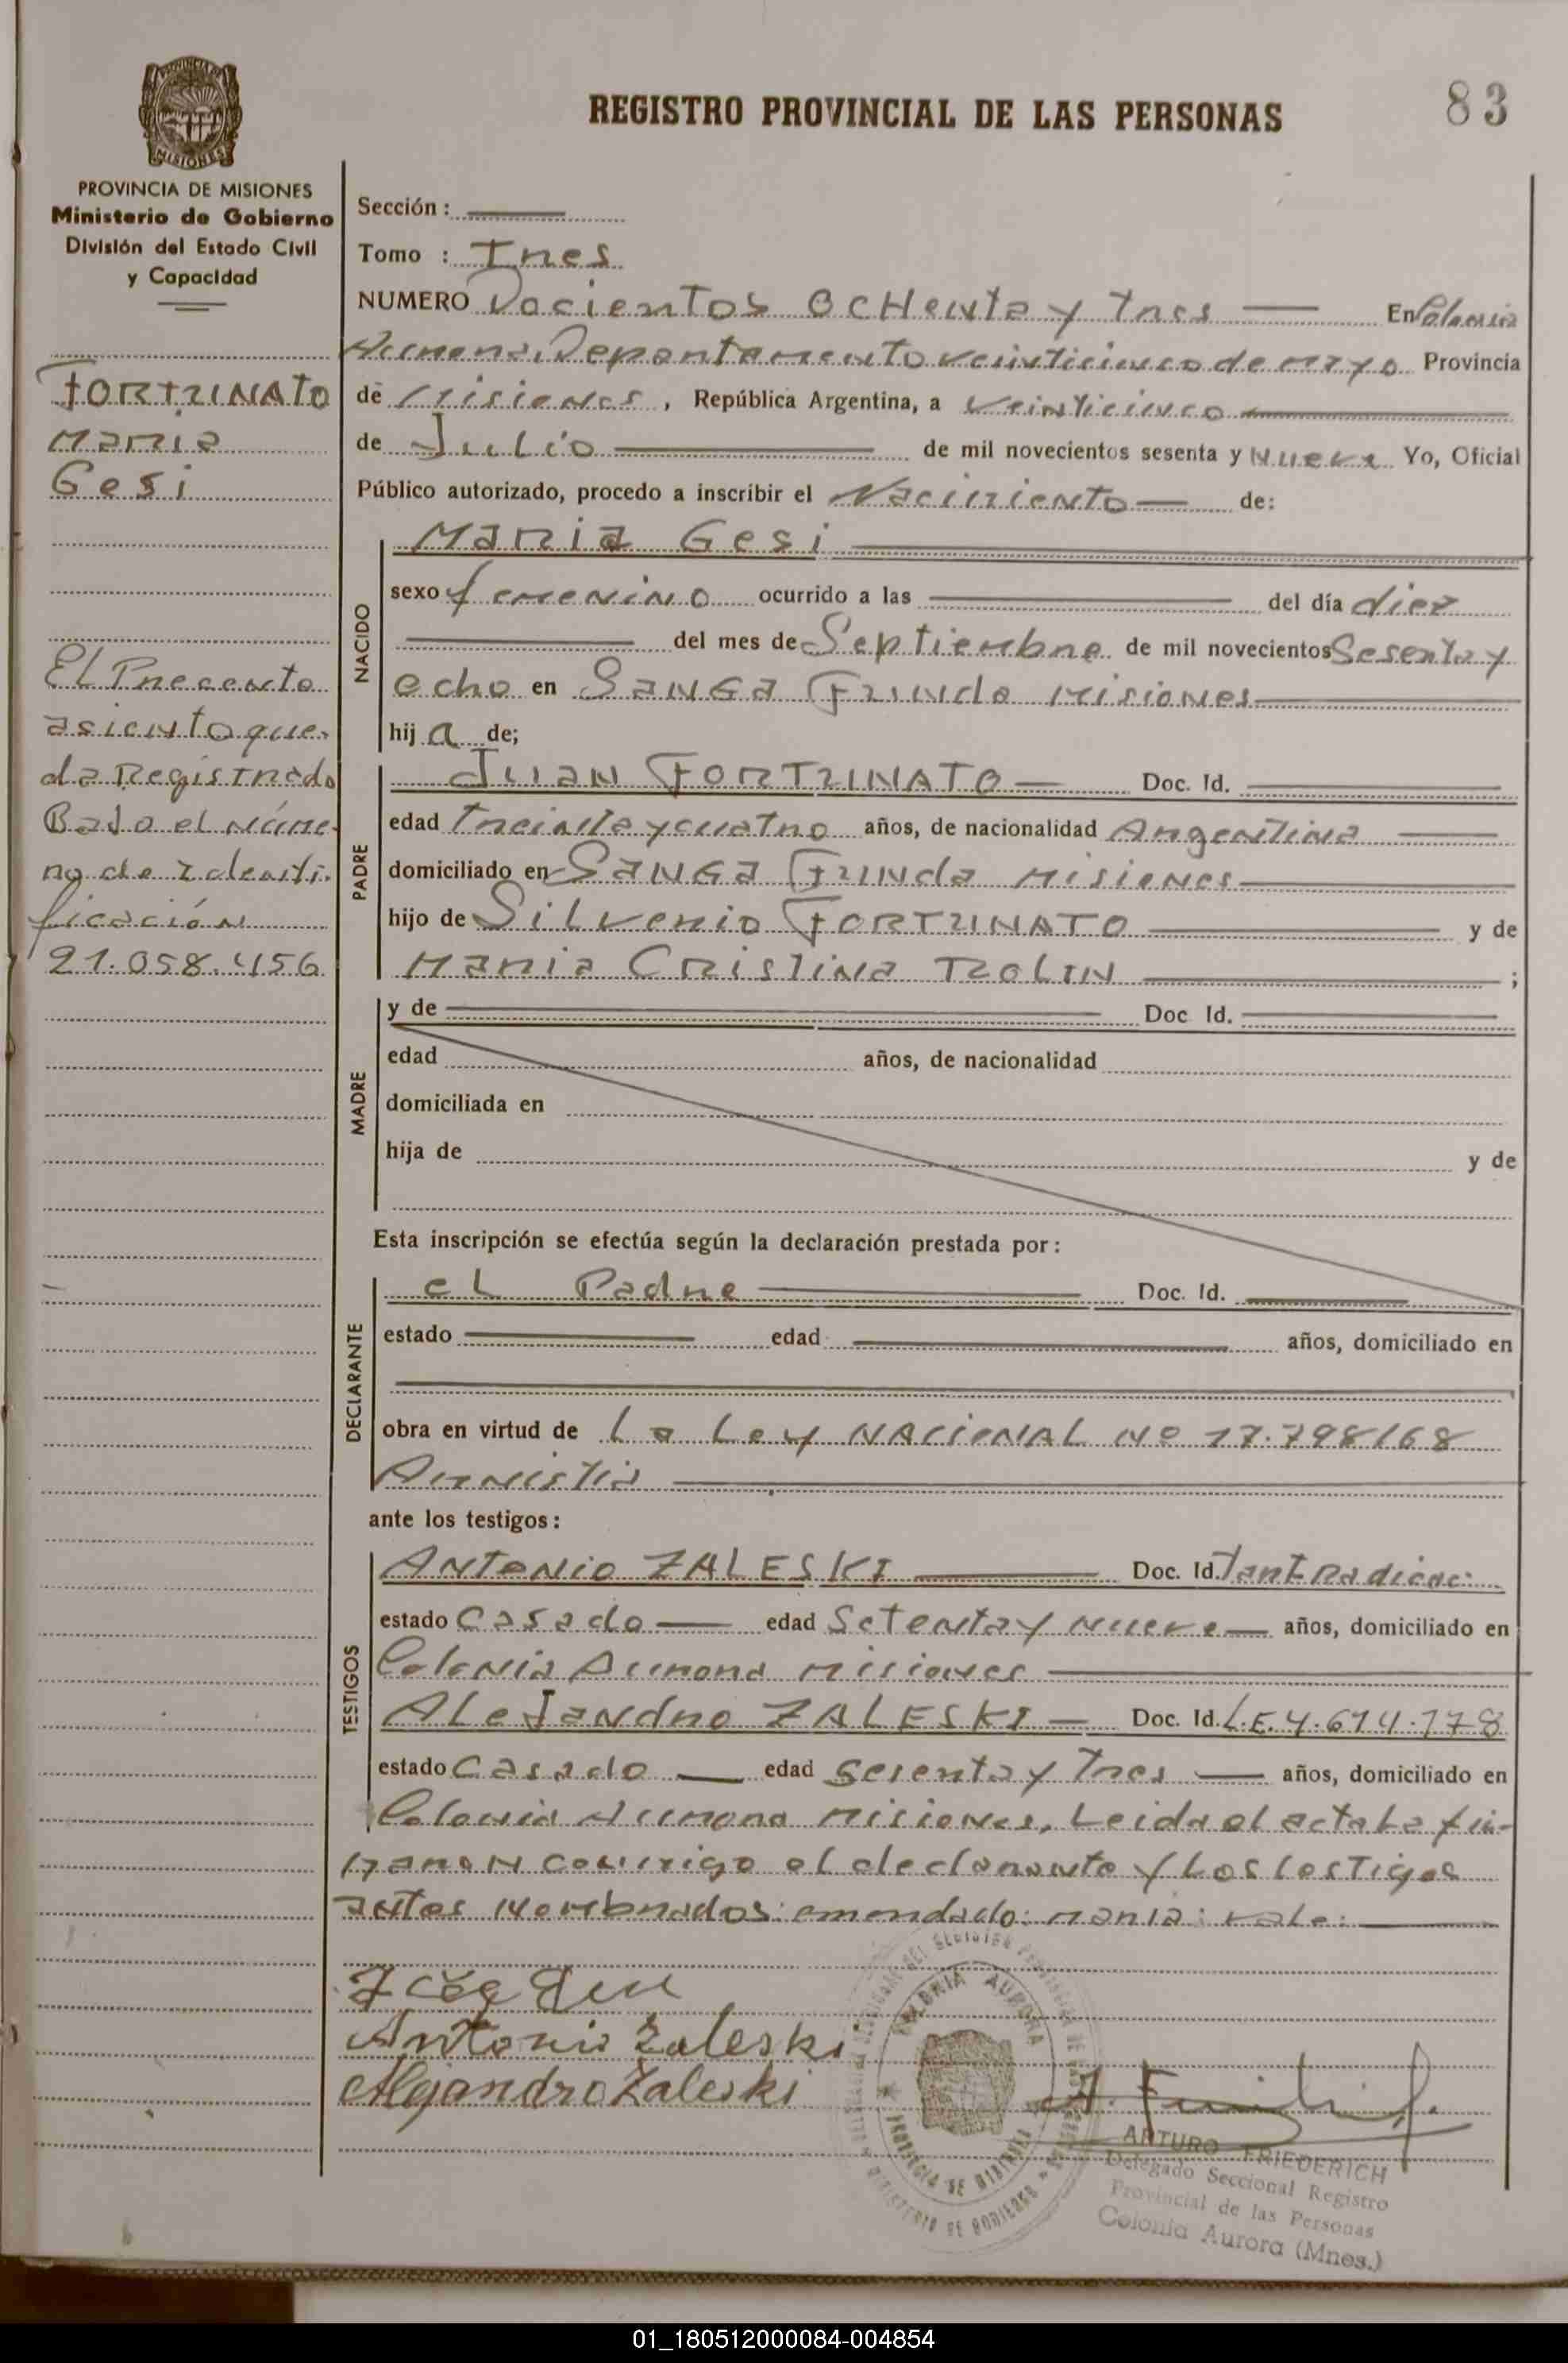 83
REGISTRO PROVINCIAL DE LAS PERSONAS
MISIONES
PROVINCIA DE MISIONES
Ministerio de Gobierno
División del Estado Civil
y Capacidad
FORTUNATO
Maria
Gesi
El Precente
asiento que-
da Registrado
Bajo el núme-
ro de Identi-
ficación
21.058.456
Sección:
Tomo : Tres
NUMERO Docientos OcHenta y Tres En Colonia
Aurora, Departamento veinticinco de mayo Provincia
de Misiones, República Argentina, a veinticinco
de Julio de mil novecientos sesenta y Nueve Yo, Oficial
Público autorizado, procedo a inscribir el Nacimiento de:
NACIDO
Maria Gesi
sexo femenino ocurrido a las del día diez
del mes de Septiembre de mil novecientos Sesenta y
echo en SANGA Funda Misiones
hij a de;
PADRE
Juan FORTUNATO Doc. Id.
edad Treinta y cuatro años, de nacionalidad Argentina
domiciliado en SANGA Funda Misiones
hijo de Silverio FORTUNATO y de
Maria Cristina ROLIN ;
MADRE
y de Doc Id.
edad años, de nacionalidad
domiciliada en
hija de y de
Esta inscripción se efectúa según la declaración prestada por:
DECLARANTE
el Padre Doc. Id.
estado edad años, domiciliado en
obra en virtud de La Ley NACIONAL Nº 17.798/68
Amnistia
ante los testigos:
TESTIGOS
ANTONIO ZALESKI Doc. Id.
estado Casado edad Setenta y nueve años, domiciliado en
Colonia Aurora Misiones
ALeJandro ZALESKI Doc. Id. L.E. 4.614.178
estado Casado edad Sesenta y Tres años, domiciliado en
Colonia Aurora Misiones, Leida el acta La fir-
maron conmigo el declarante y Los testigos
antes Nombrados: emendado: maria: vale:
Antonio Zaleski
Alejandro Zaleski
COLONIA AURORA
PROVINCIA DE MISIONES
MINISTERIO DE GOBIERNO
ARTURO FRIEDERICH
Delegado Seccional Registro
Provincial de las Personas
Colonia Aurora (Mnes.)
01_180512000084-004854